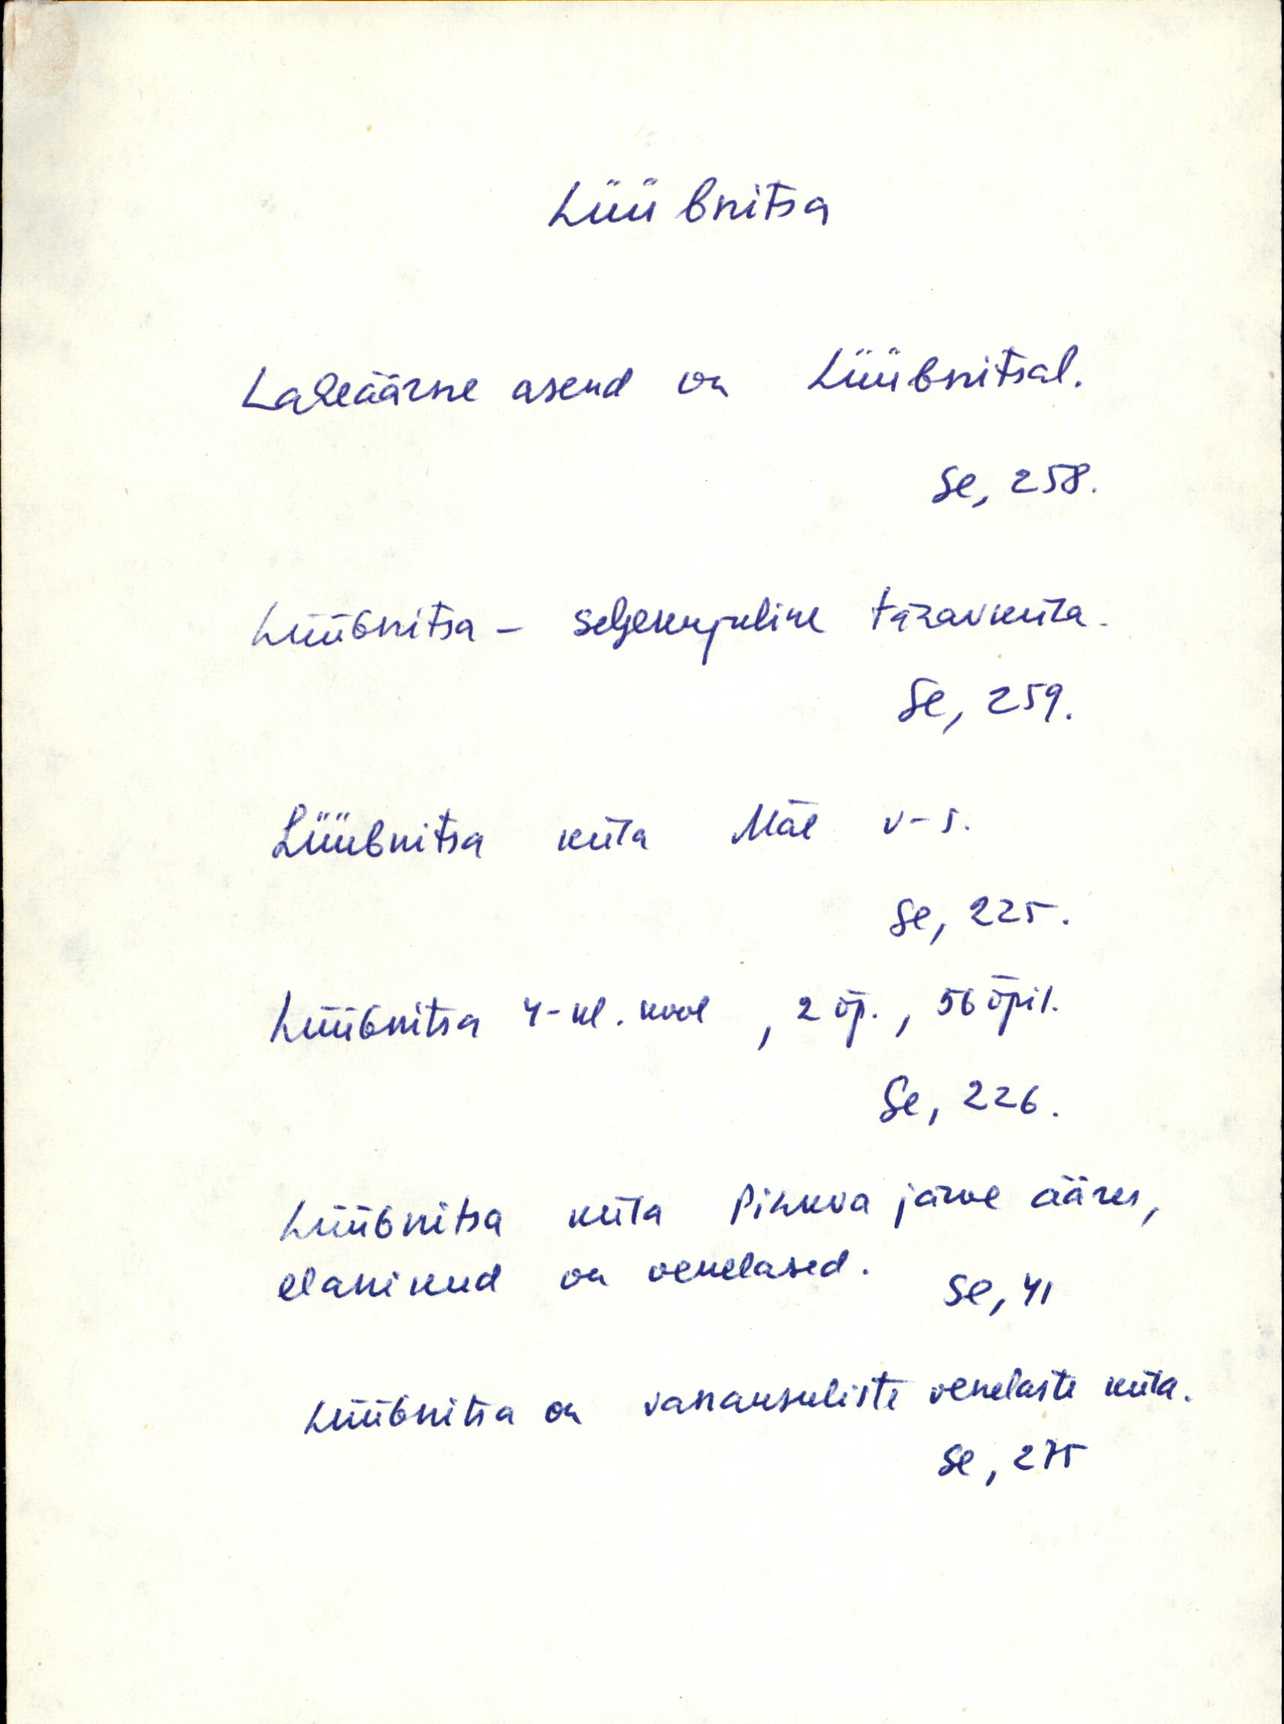 Lüübnitsa
Laheäärne asend on Lüübnitsal.
Se, 258.
Lüübnitsa – selgekujuline tänavküla.
Se, 259.
Lüübnitsa küla Mäe v-s.
Se, 225.
Lüübnitsa 4-kl. kool, 2 õp., 56 õpil.
Se, 226.
Lüübnitsa küla Pihkva järve ääres,
elanikud on venelased.
Se, 41
Lüübnitsa on vanausuliste venelaste küla.
Se, 275